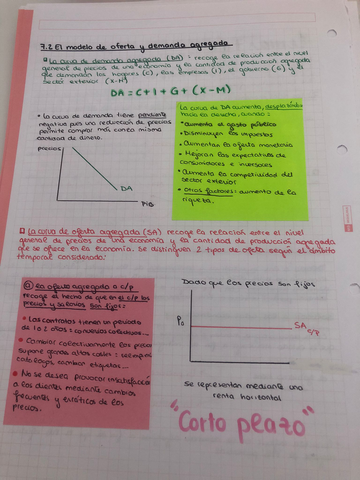 7.2 El modelo de oferta y demanda agregada
La curva de demanda agregada (DA): recoge la relación entre el nivel
general de precios de una economía y la cantidad de producción agregada
que demandan los hogares (C), las empresas (I), el gobierno (G) y el
sector exterior (X-M)
DA = C + I + G + (X - M)
• La curva de demanda tiene pendiente
negativa pues una reducción de precios
permite comprar más con la misma
cantidad de dinero.
precios
DA
PIB
La curva de DA aumenta, desplazándose
hacia la derecha, cuando:
• aumenta el gasto público
• Disminuyen los impuestos
• Aumentan la oferta monetaria
• Mejoran las expectativas de
consumidores e inversores
• Aumenta la competitividad del
sector exterior
• otros factores: aumento de la
riqueza.
La curva de oferta agregada (SA) recoge la relación entre el nivel
general de precios de una economía y la cantidad de producción agregada
que se ofrece en la economía. Se distinguen 2 tipos de oferta según el ámbito
temporal considerado:
① La oferta agregada a c/p
recoge el hecho de que en el c/p los
precios y salarios son fijos:
• Los contratos tienen un periodo
de 1 o 2 años: convenios colectivos...
• Cambiar colectivamente los precios
supone grandes altos costes:
catálogos, cambiar etiquetas...
• No se desea provocar insatisfacción
a los clientes mediante cambios
frecuentes y erráticos de los
precios.
Dado que los precios son fijos
P₀
SA c/p
se representan mediante una
renta horizontal
"Corto plazo"